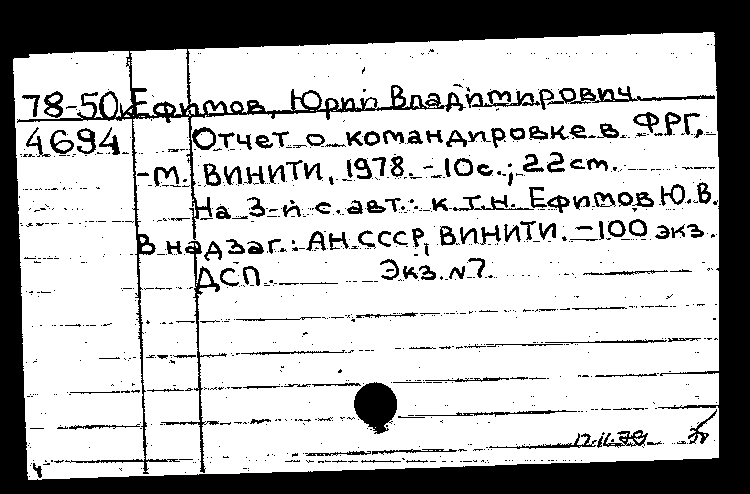 78-50к Ефимов, Юрий Владимирович.
4694 Отчет о командировке в ФРГ,
-М. ВИНИТИ, 1978. -10с.; 22ст.
На 3-й с. авт.: к.т.н. Ефимов Ю.В.
В надзаг.: АН СССР, ВИНИТИ. -100 экз.
ДСП. Экз. N7.